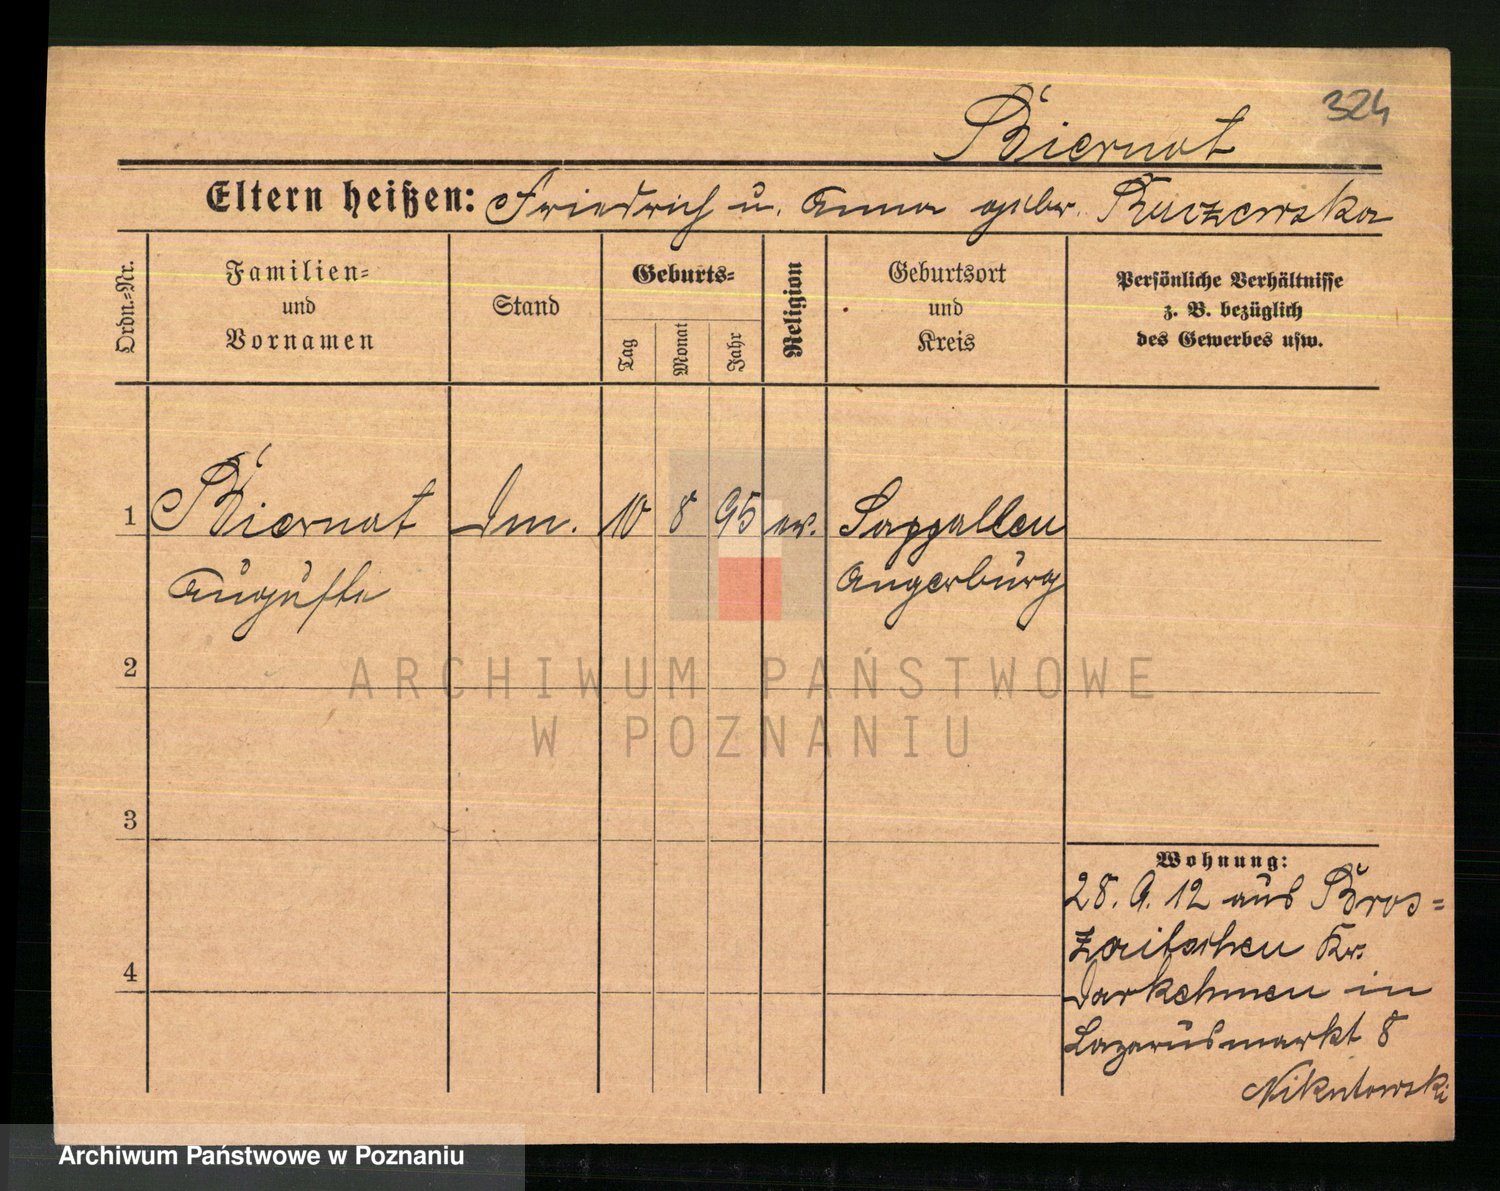 324
Biernat
Eltern heißen: Friedrich u. Anna gebr. Kuczewska
Ordn.=Nr.
Familien=
und
Vornamen
Stand
Geburts=
Tag
Monat
Jahr
Religion
Geburtsort
und
Kreis
Persönliche Verhältnisse
z. B. bezüglich
des Gewerbes usw.
1 Biernat Dm. 10 8 95 ev. Sapallen
Auguste Angerburg
2
ARCHIWUM PAŃSTWOWE
W POZNANIU
3
Wohnung:
28. 9. 12 aus Bros=
zaitschen Kr.
4
Darkehmen in
Lazarusmarkt 8
Nikutowski
Archiwum Państwowe w Poznaniu